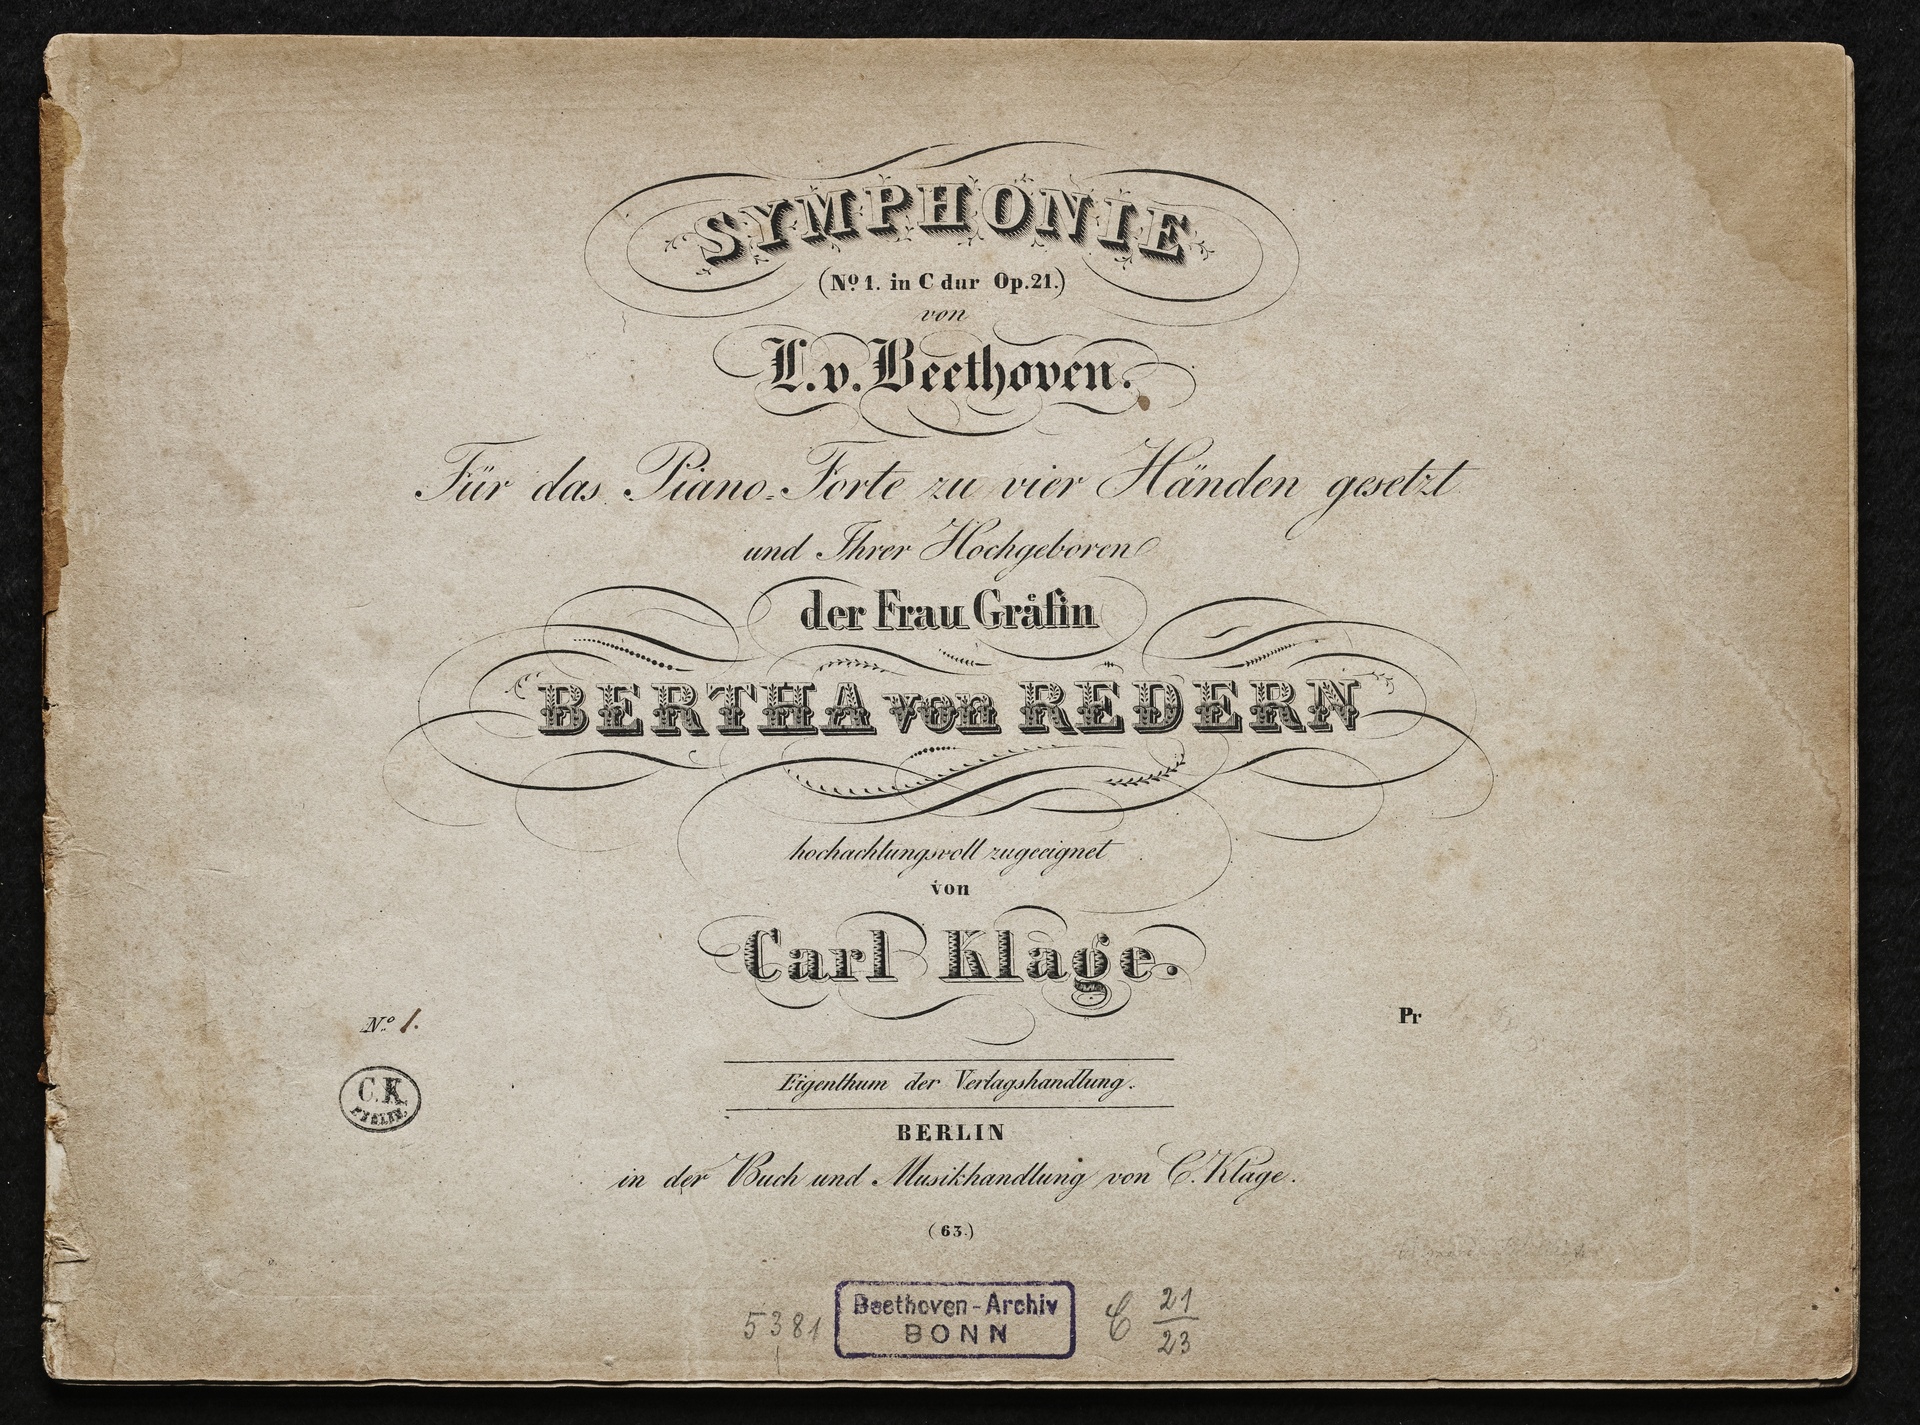 SYMPHONIE
(No. 1. in C dur Op.21.)
von
L.v.Beethoven.
Für das Piano=Forte zu vier Händen gesetzt
und Ihrer Hochgeboren
der Frau Gräfin
BERTHA von REDERN
hochachtungsvoll zugeeignet
von
Carl Klage.
No. 1.
Pr
C.K.
BERLIN.
Eigenthum der Verlagshandlung.
BERLIN
in der Buch und Musikhandlung von C. Klage.
(63.)
5381
Beethoven-Archiv
BONN
C 21/23